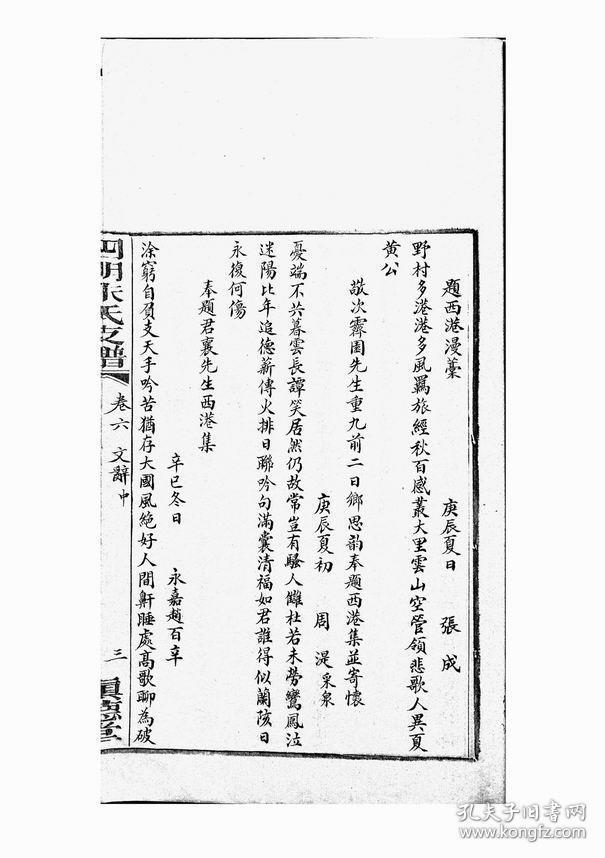 題西港漫藁 庚辰夏日 張成
野村多港港多風羈旅經秋百感叢大里雲山空管領悲歌人異夏
黃公
敬次霽園先生重九前二日鄉思韵奉題西港集並寄懷
庚辰夏初 周湜采泉
憂端不共暮雲長譚笑居然仍故常豈有騷人讎杜若未勞鸞鳳泣
迷陽比年追德薪傳火排日聯吟句滿囊清福如君誰得似蘭陔日
永復何傷
奉題君襄先生西港集
辛巳冬日 永嘉趙百辛
涂窮自負支天手吟苦猶存大國風絕好人間鼾睡處高歌聊為破
四明朱氏支譜
卷六 文辭中
三
孔夫子旧书网
www.kongfz.com